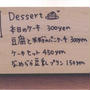 Dessert
本日のケーキ 300yen
豆腐と米粉のパンケーキ 300yen
ケーキセット 450yen
なめらか豆乳プリン 150yen